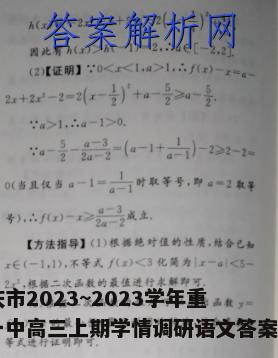 答案解析网
(2)【证明】∵0<x<1,a>1,∴f(x)-x=a-
2x+2x²-2=2(x-1/2)²+a-5/2≥a-5/2.
∵a>1,∴a-1>0.
∵a-5/2-(a-3)/(2a-2)=(a-1+1/(a-1))-2≥2-2=
0(当且仅当 a-1=1/(a-1)时取等号,即 a=2 取等
号),∴f(x)-x≥(a-3)/(2a-2)成立.
【方法指导】(1)根据绝对值的性质,结合已知
x∈(-1,1),不等式 f(x)<3 化简为|x-a|<5-
2x²,根据二次函数的最值进行求解即可.
市2023~2023学年重
中高三上期学情调研语文答案
等式进行证明即可.